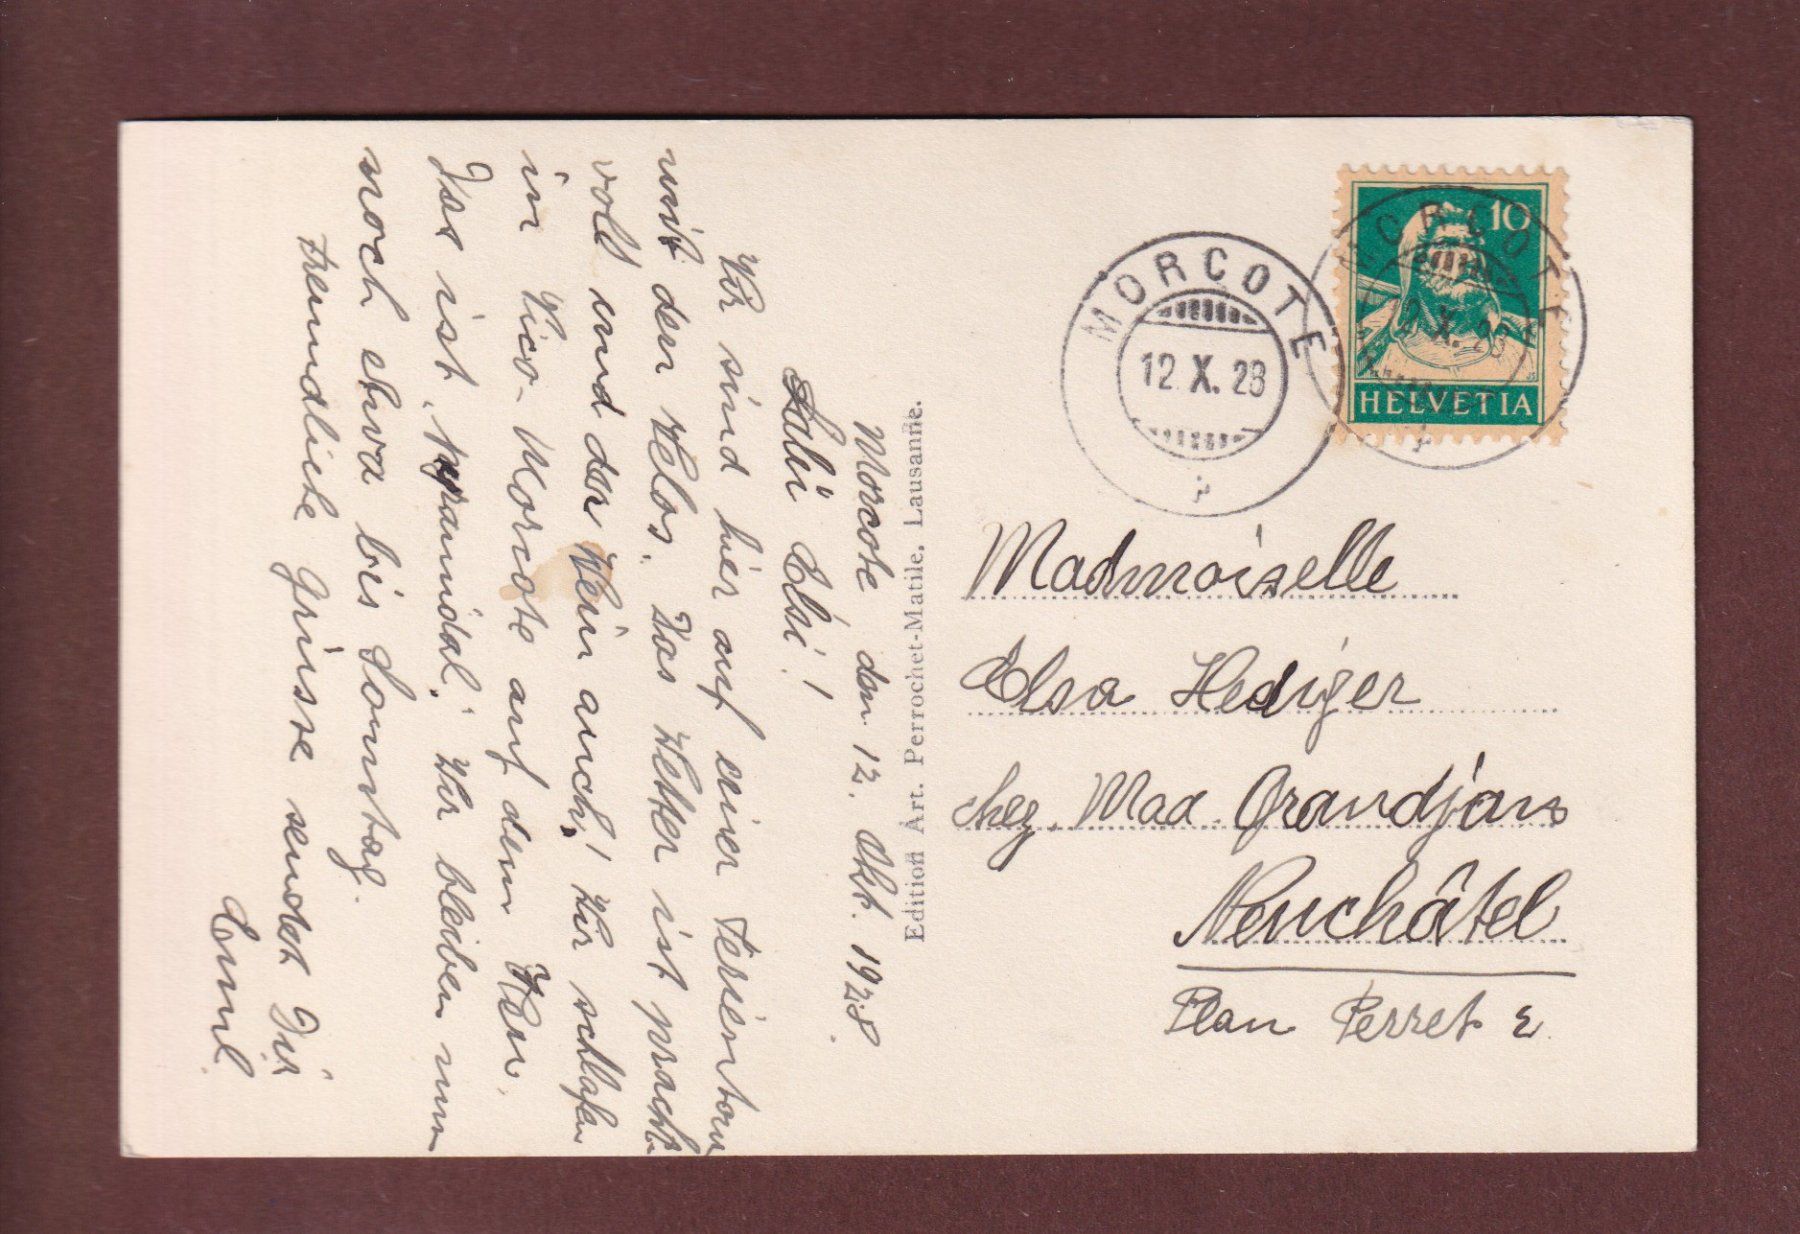 Morcote den 12. Okt. 1928.
Sali Elsi!
Wir sind hier auf einer Ferientour
mit den Velos. Das Wetter ist pracht-
voll und der Wein auch! Wir schlafen
in Vico-Morcote auf dem Heu.
Das ist "pyramidal". Wir bleiben nun
noch etwa bis Sonntag.
Freundliche Grüsse sendet Dir
Emil.
Edition Art. Perrochet-Matile, Lausanne.
MORCOTE
12. X. 28
MORCOTE
12. X. 28
10
HELVETIA
Madmoiselle
Elsa Hediger
chez. Maa Grandjans
Neuchâtel
Plan Perret 2.